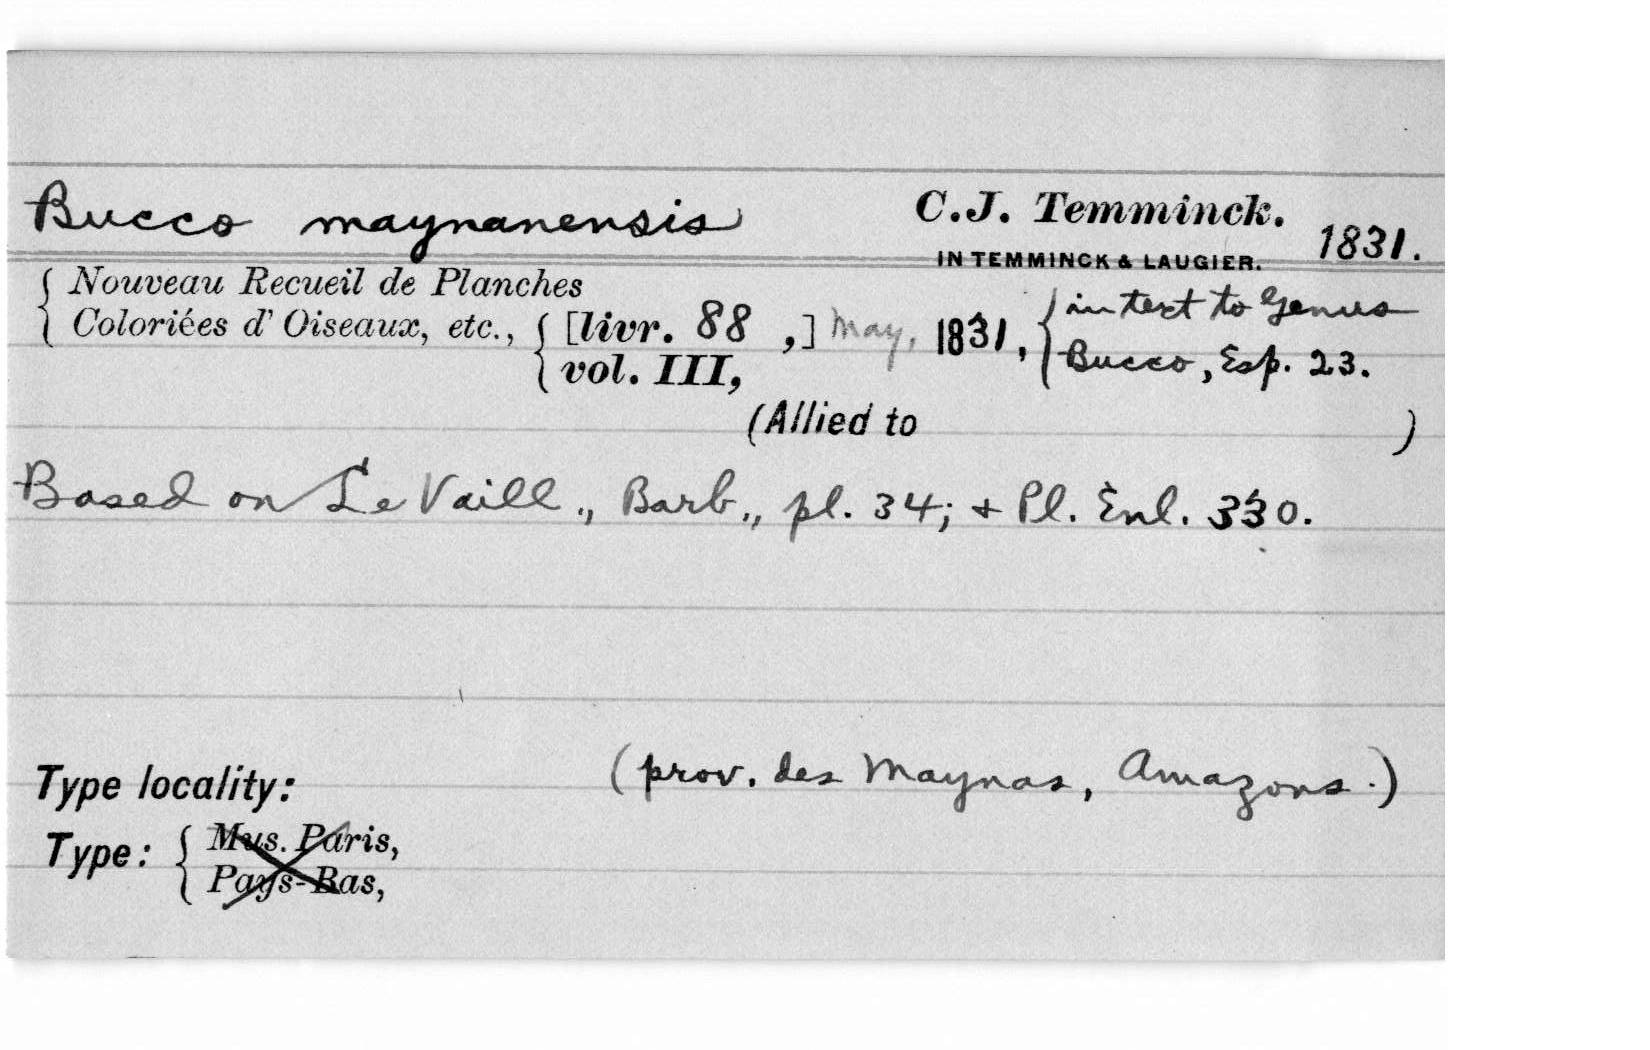 Bucco maynanensis C.J. Temminck. 1831.
IN TEMMINCK & LAUGIER.
{ Nouveau Recueil de Planches
Coloriées d' Oiseaux, etc., { [livr. 88 ,] May, 1831, { in text to Genus
vol. III, Bucco, Esp. 23.
(Allied to )
Based on Le Vaill., Barb., pl. 34; + Pl. Enl. 330.
Type locality: (prov. des Maynas, Amazons.)
Type: { Mus. Paris,
Pays-Bas,